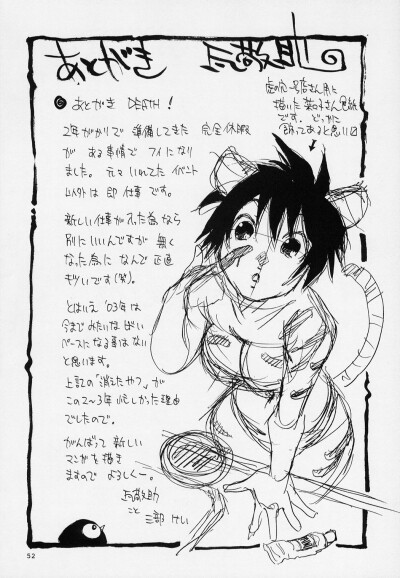 あとがき
あとがき DEATH!
2年がかりで 準備してきた 完全休暇
が ある事情で フイになり
ました。元々 いれてた イベント
以外は 即 仕事 です。
新しい仕事が入った為なら
別にいいんですが 無く
なった為に なんで 正直
キツいです(笑)。
とはいえ '03年は
今までみたいな
ペースになる事はない
と思います。
上記の「消えたやつ」が
この2〜3年 忙しかった理由
でしたので。
がんばって 新しい
マンガを描き
ますので よろしくー。
こと
三部 けい
虎の穴一号店さん用に
描いた 色紙
です。どっかに
飾ってあると思い
52